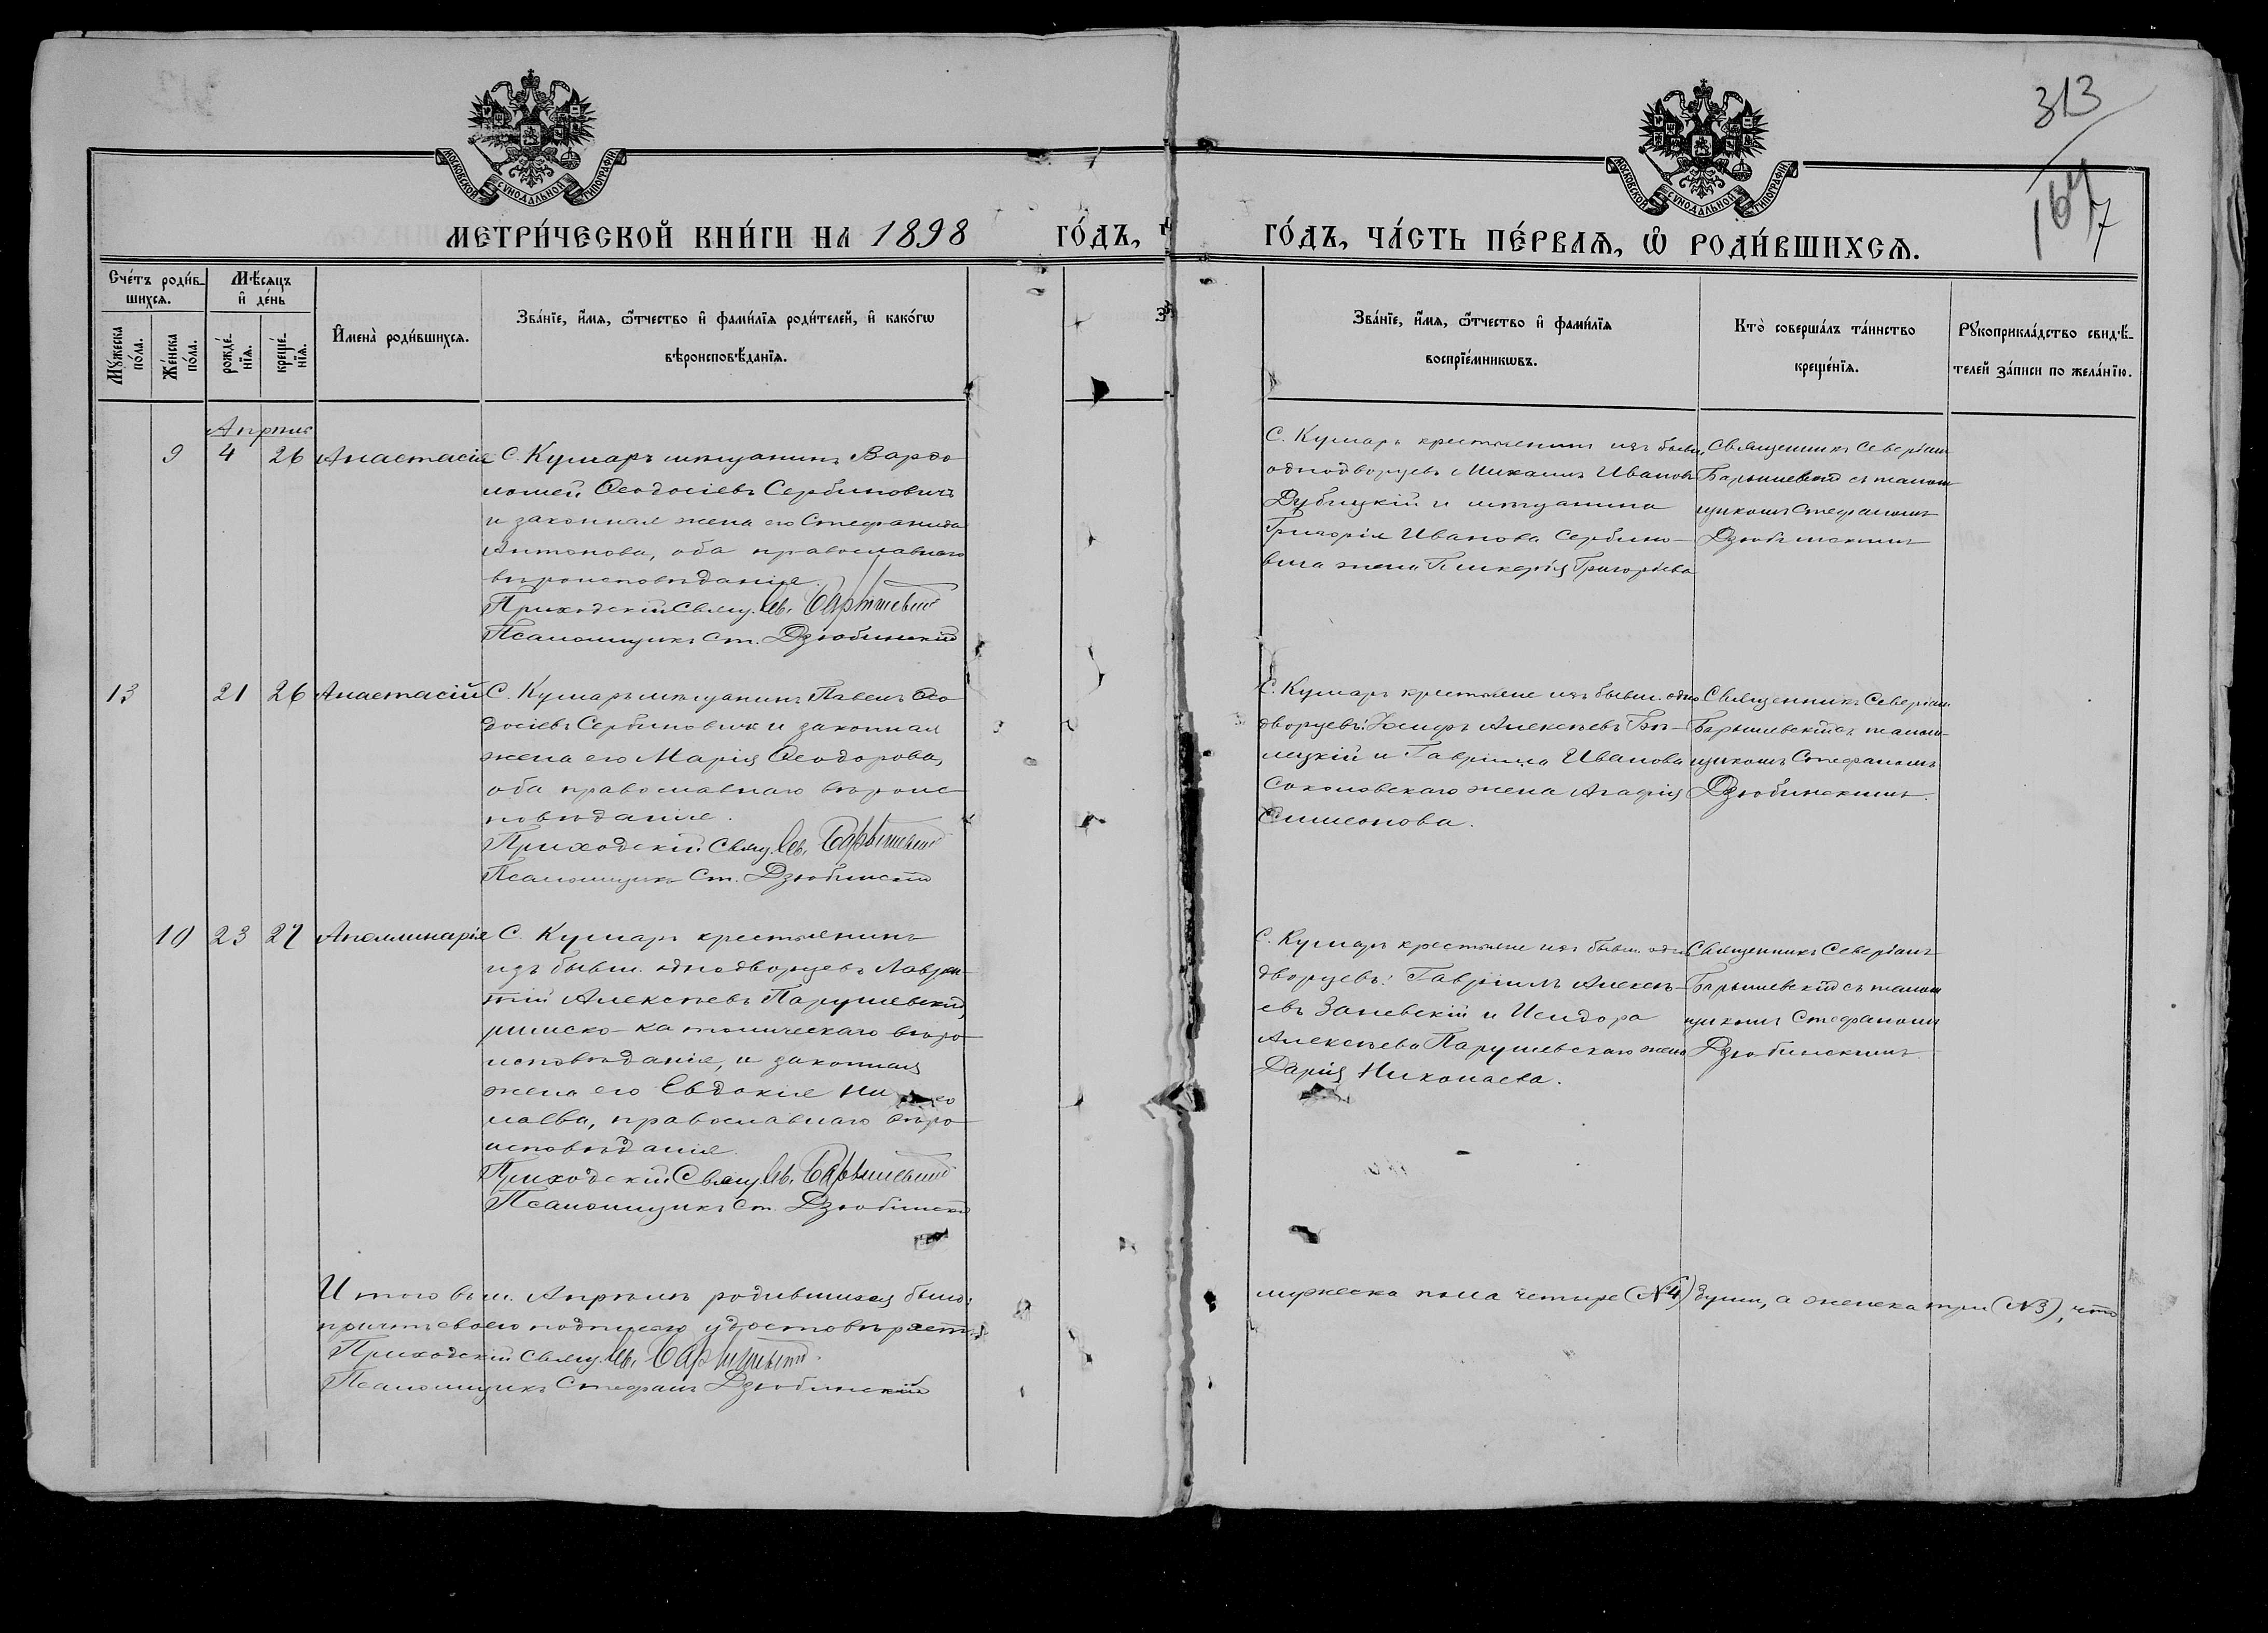 313
164
7
МОСКОВСКОЙ СѴНОДАЛЬНОЙ ТИПОГРАФІИ
МОСКОВСКОЙ СѴНОДАЛЬНОЙ ТИПОГРАФІИ
МЕТРИ́ЧЕСКОЙ КНИ́ГИ НА 1898 ГО́ДЪ,
ГО́ДЪ, ЧА́СТЬ ПЕ́РВАѦ, Ѽ РОДИ́ВШИХСѦ.
Сче́тъ роди́в-
шихсѧ.
Мѣ́сѧцъ
и҆ де́нь
Мꙋ́жеска
по́ла.
Же́нска
по́ла.
рожде́-
нїѧ.
креще́-
нїѧ.
И҆мена̀ роди́вшихсѧ.
Зва́нїе, и҆́мѧ, ѻ҆́тчество и҆ фами́лїѧ роди́телей, и҆ како́гѡ
вѣроисповѣ́данїѧ.
Зва́нїе, и҆́мѧ, ѻ҆́тчество и҆ фами́лїѧ
воспрїе́мникѡвъ.
Кто̀ соверша́лъ та́инство
креще́нїѧ.
Рꙋкоприкла́дство свидѣ́-
телей за́писи по жела́нїю.
Апрѣль
9 4 26 Анастасія
С. Кумаръ мѣщанинъ Варѳо
ломей Ѳеодосіевъ Сербиновичъ
и законная жена его Стефанида
Антонова, оба православнаго
вѣроисповѣданія.
Приходскій Свящ. Св. Барышевскій
Псаломщикъ Ст. Дзюбинскій
С. Кумаръ крестьянинъ изъ бывш.
однодворцевъ Михаилъ Ивановъ
Дубицкій и мѣщанина
Григорія Иванова Сербино-
вича жена Гликерія Григорьева
Священникъ Северіанъ
Барышевскій съ псалом
щикомъ Стефаномъ
Дзюбинскимъ
13 21 26 Анастасій
С. Кумаръ мѣщанинъ Павелъ Ѳео
досіевъ Сербиновичъ и законная
жена его Марія Ѳеодорова,
оба православнаго вѣроис
повѣданія.
Приходскій Свящ. Св. Барышевскій
Псаломщикъ Ст. Дзюбинскій
С. Кумаръ крестьяне изъ бывш. одно
дворцевъ: Іосифъ Алексѣевъ Бѣ-
лецкій и Гавріила Иванова
Соколовскаго жена Агафія
Симеонова.
Священникъ Северіанъ
Барышевскій съ псалом-
щикомъ Стефаномъ
Дзюбинскимъ.
10 23 27 Аполлинарія
С. Кумаръ крестьянинъ
изъ бывш. однодворцевъ Лаврен
тій Алексѣевъ Парушевскій,
римско-католическаго вѣро
исповѣданія, и законная
жена его Евдокія Нико
лаева, православнаго вѣро
исповѣданія.
Приходскій Свящ. Св. Барышевскій
Псаломщикъ Ст. Дзюбинскій
С. Кумаръ крестьяне изъ бывш. одно
дворцевъ: Гавріилъ Алексѣ-
евъ Заневскій и Исидора
Алексѣева Парушевскаго жена
Дарія Николаева.
Священникъ Северіанъ
Барышевскій съ псалом
щикомъ Стефаномъ
Дзюбинскимъ.
Итого въ м. Апрѣлѣ родившихся было: мужеска пола четыре (№ 4) души, а женска три (№ 3), что
причтъ своею подписью удостовѣряетъ:
Приходскій Свящ. Св. Барышевскій.
Псаломщикъ Стефанъ Дзюбинскій